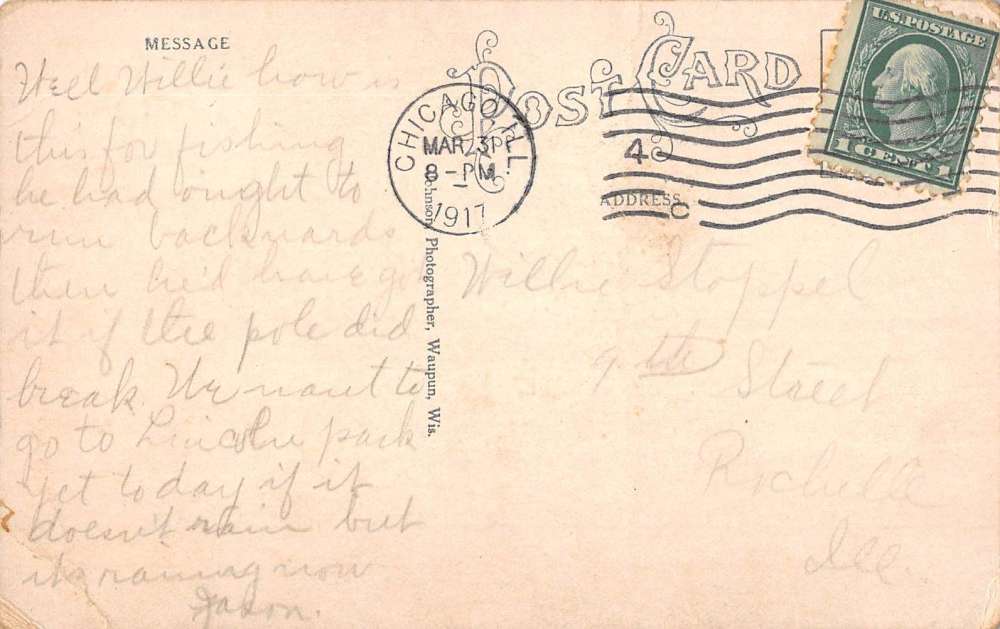 MESSAGE
POST CARD
U.S. POSTAGE
1 CENT 1
CHICAGO ILL.
MAR 31
8 - PM
1917
4
C
ADDRESS
Johnson, Photographer, Waupun, Wis.
Well Willie how is
this for fishing
he had ought to
run backwards
then he'd have got
it if the pole did
break. We want to
go to Lincoln park
yet today if it
doesn't rain but
its raining now
Willie Stoppel
9th Street
Rochelle
Ill.